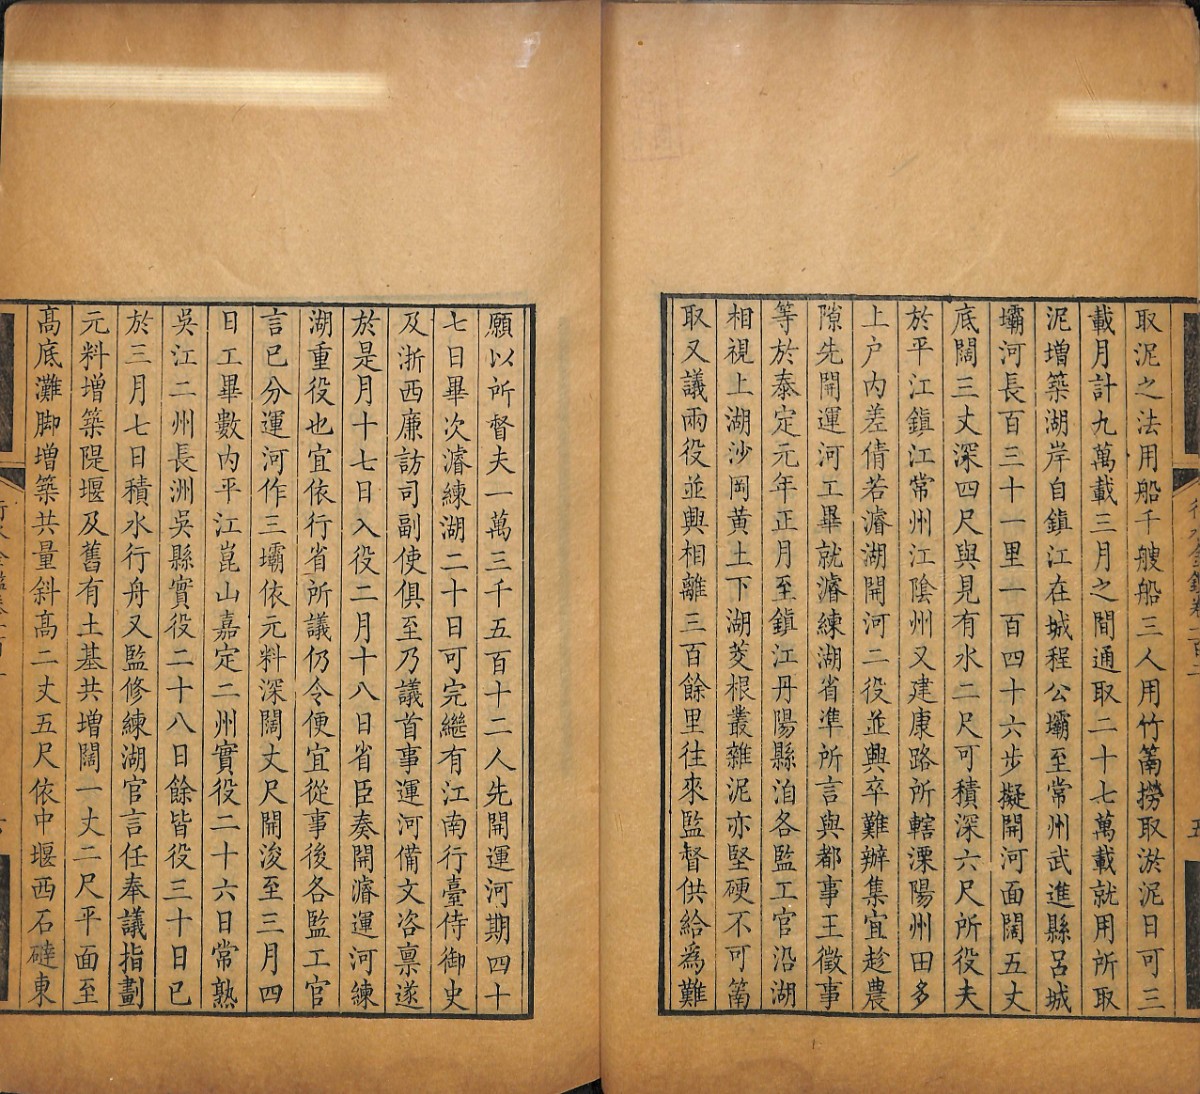 取泥之法用船千艘船三人用竹䈰撈取淤泥日可三
載月計九萬載三月之間通取二十七萬載就用所取
泥增築湖岸自鎮江在城程公壩至常州武進縣呂城
壩河長百三十一里一百四十六步擬開河面闊五丈
底闊三丈深四尺與見有水二尺可積深六尺所役夫
於平江鎮江常州江陰州又建康路所轄溧陽州田多
上户内差倩若濬湖開河二役並興卒難辦集宜趁農
隙先開運河工畢就濬練湖省準所言與都事王徵事
等於泰定元年正月至鎮江丹陽縣洎各監工官沿湖
相視上湖沙岡黄土下湖茭根叢雜泥亦堅硬不可䈰
取又議兩役並興相離三百餘里往來監督供給爲難
願以所督夫一萬三千五百十二人先開運河期四十
七日畢次濬練湖二十日可完繼有江南行臺侍御史
及浙西廉訪司副使俱至乃議首事運河備文咨禀遂
於是月十七日入役二月十八日省臣奏開濬運河練
湖重役也宜依行省所議仍令便宜從事後各監工官
言已分運河作三壩依元料深闊丈尺開浚至三月四
日工畢數内平江崑山嘉定二州實役二十六日常熟
吳江二州長洲吳縣實役二十八日餘皆役三十日已
於三月七日積水行舟又監修練湖官言任奉議指劃
元料增築隄堰及舊有土基共增闊一丈二尺平面至
高底灘脚增築共量斜高二丈五尺依中堰西石䃮東